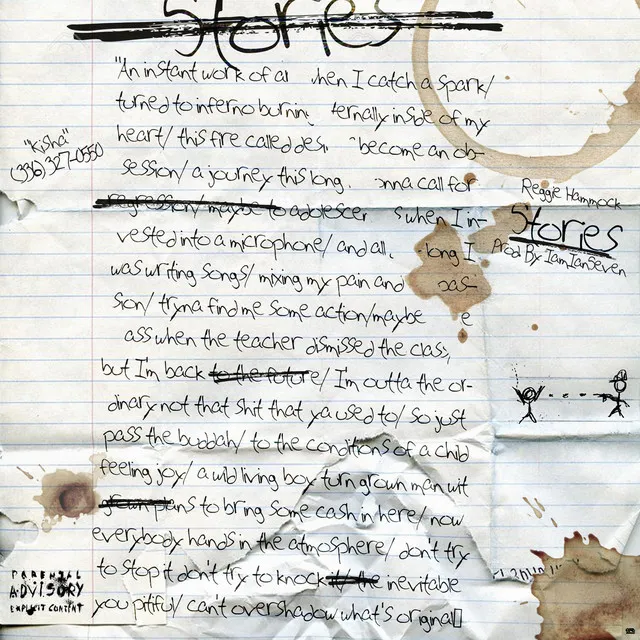 Stories
"An instant work of a when I catch a spark/
turned to inferno burnin ternally inside of my
heart/ this fire called des become an ob-
session/ a journey this long onna call for
regression/ maybe to adolescen s when I in-
vested into a microphone/ and all long I
was writing songs/ mixing my pain and pas-
sion/ tryna find me some action/maybe e
ass when the teacher dismissed the class,
but I'm back to the future/ I'm outta the or-
dinary not that shit that ya used to/ so just
pass the buddah/ to the conditions of a child
feeling joy/ a wild living boy turn grown man wit
plans to bring some cash in here/ now
everybody hands in the atmosphere/ don't try
to stop it don't try to knock it/ the inevitable
you pitiful/ can't overshadow what's original]
"Kisha"
(336) 327-0550
Reggie Hammock
Stories
Prod By IamIanSeven
PARENTAL
ADVISORY
EXPLICIT CONTENT